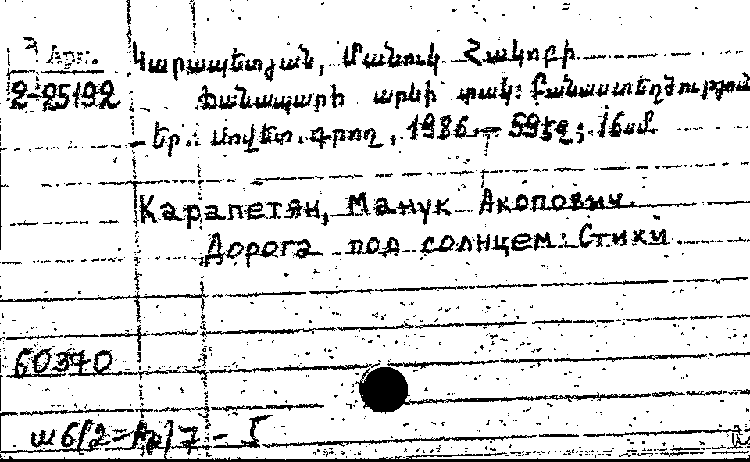 Յ Арм. Կարապետյան, Մանուկ Հակոբի
2-25192 Ճանապարհ արևի տակ: Բանաստեղծություն
- Եր.: Սովետ. գրող, 1986. – 59 էջ; 16 սմ.
Карапетян, Манук Акопович.
Дорога под солнцем: Стихи
60370